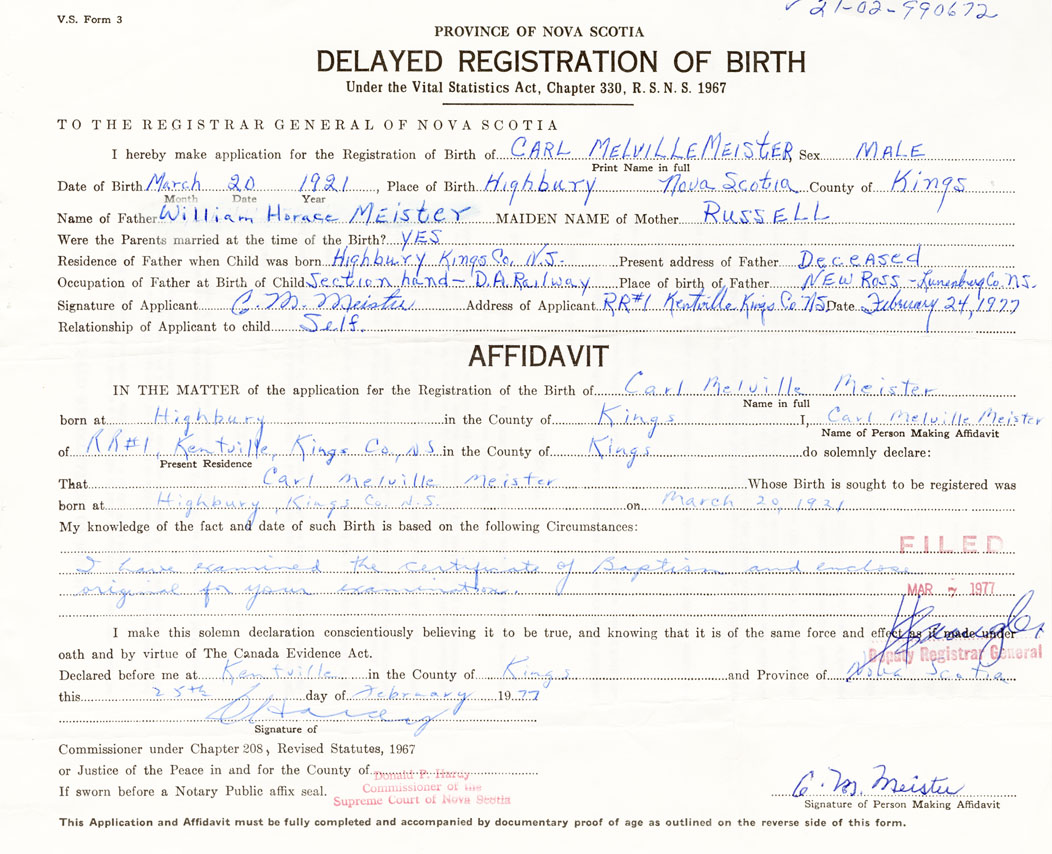 V.S. Form 3
21-02-990672
PROVINCE OF NOVA SCOTIA
DELAYED REGISTRATION OF BIRTH
Under the Vital Statistics Act, Chapter 330, R. S. N. S. 1967
TO THE REGISTRAR GENERAL OF NOVA SCOTIA
I hereby make application for the Registration of Birth of CARL MELVILLE MEISTER Sex MALE
Print Name in full
Date of Birth March 20 1921, Place of Birth Highbury Nova Scotia County of Kings
Month Date Year
Name of Father William Horace MEISTER MAIDEN NAME of Mother RUSSELL
Were the Parents married at the time of the Birth? YES
Residence of Father when Child was born Highbury Kings Co. N.S. Present address of Father DECEASED
Occupation of Father at Birth of Child Section hand - D.A. Railway Place of birth of Father NEW ROSS - Lunenburg Co. NS.
Signature of Applicant C. M. Meister Address of Applicant RR#1 Kentville Kings Co NS Date February 24, 1977
Relationship of Applicant to child Self.
AFFIDAVIT
IN THE MATTER of the application for the Registration of the Birth of Carl Melville Meister
Name in full
born at Highbury in the County of Kings I, Carl Melville Meister
Name of Person Making Affidavit
of RR#1, Kentville, Kings Co, NS in the County of Kings do solemnly declare:
Present Residence
That Carl Melville Meister Whose Birth is sought to be registered was
born at Highbury, Kings Co. N.S. on March 20, 1921
My knowledge of the fact and date of such Birth is based on the following Circumstances:
FILED
I have examined the certificate of Baptism and enclose
original for your examination.
MAR 7 1977
I make this solemn declaration conscientiously believing it to be true, and knowing that it is of the same force and effect as if made under
oath and by virtue of The Canada Evidence Act.
Deputy Registrar General
Declared before me at Kentville in the County of Kings and Province of Nova Scotia
this 25th day of February 1977
Signature of
Commissioner under Chapter 208, Revised Statutes, 1967
or Justice of the Peace in and for the County of
If sworn before a Notary Public affix seal.
Donald P. Hardy
Commissioner of the
Supreme Court of Nova Scotia
C. M. Meister
Signature of Person Making Affidavit
This Application and Affidavit must be fully completed and accompanied by documentary proof of age as outlined on the reverse side of this form.